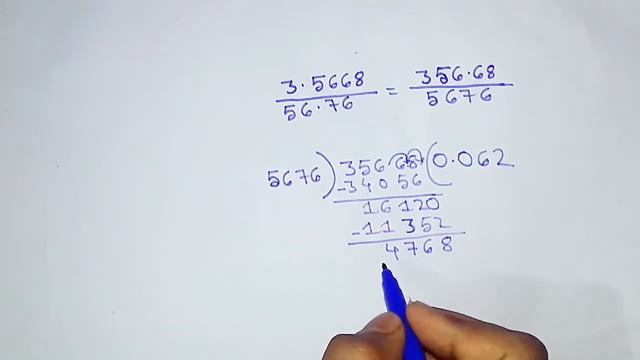 3.5668 = 356.68
56.76 5676
5676)356 68(0.062
-340 56
16120
-11352
4768